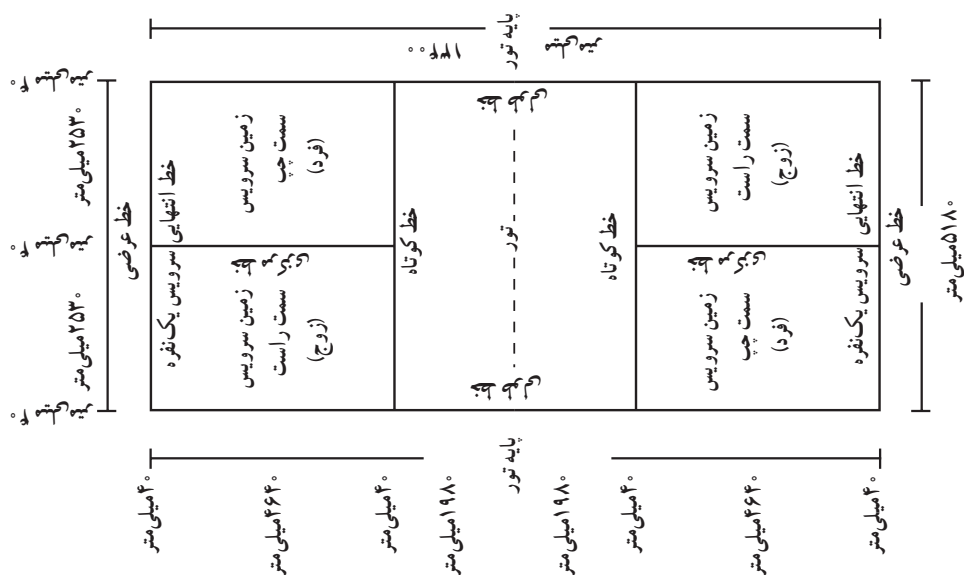 پایه تور
۱۳۴۰۰ میلی‌متر
۴۰ میلی‌متر
۲۵۳۰ میلی‌متر
۴۰ میلی‌متر
۲۵۳۰ میلی‌متر
۴۰ میلی‌متر
خط عرضی
خط انتهایی سرویس یک‌نفره
زمین سرویس
سمت چپ
(فرد)
خط مرکزی
زمین سرویس
سمت راست
(زوج)
خط کوتاه
خط طولی
تور
خط طولی
خط کوتاه
زمین سرویس
سمت راست
(زوج)
خط مرکزی
زمین سرویس
سمت چپ
(فرد)
خط انتهایی سرویس یک‌نفره
خط عرضی
۵۱۸۰ میلی‌متر
پایه تور
۴۰ میلی‌متر
۴۶۴۰ میلی‌متر
۴۰ میلی‌متر
۱۹۸۰ میلی‌متر
۱۹۸۰ میلی‌متر
۴۰ میلی‌متر
۴۶۴۰ میلی‌متر
۴۰ میلی‌متر